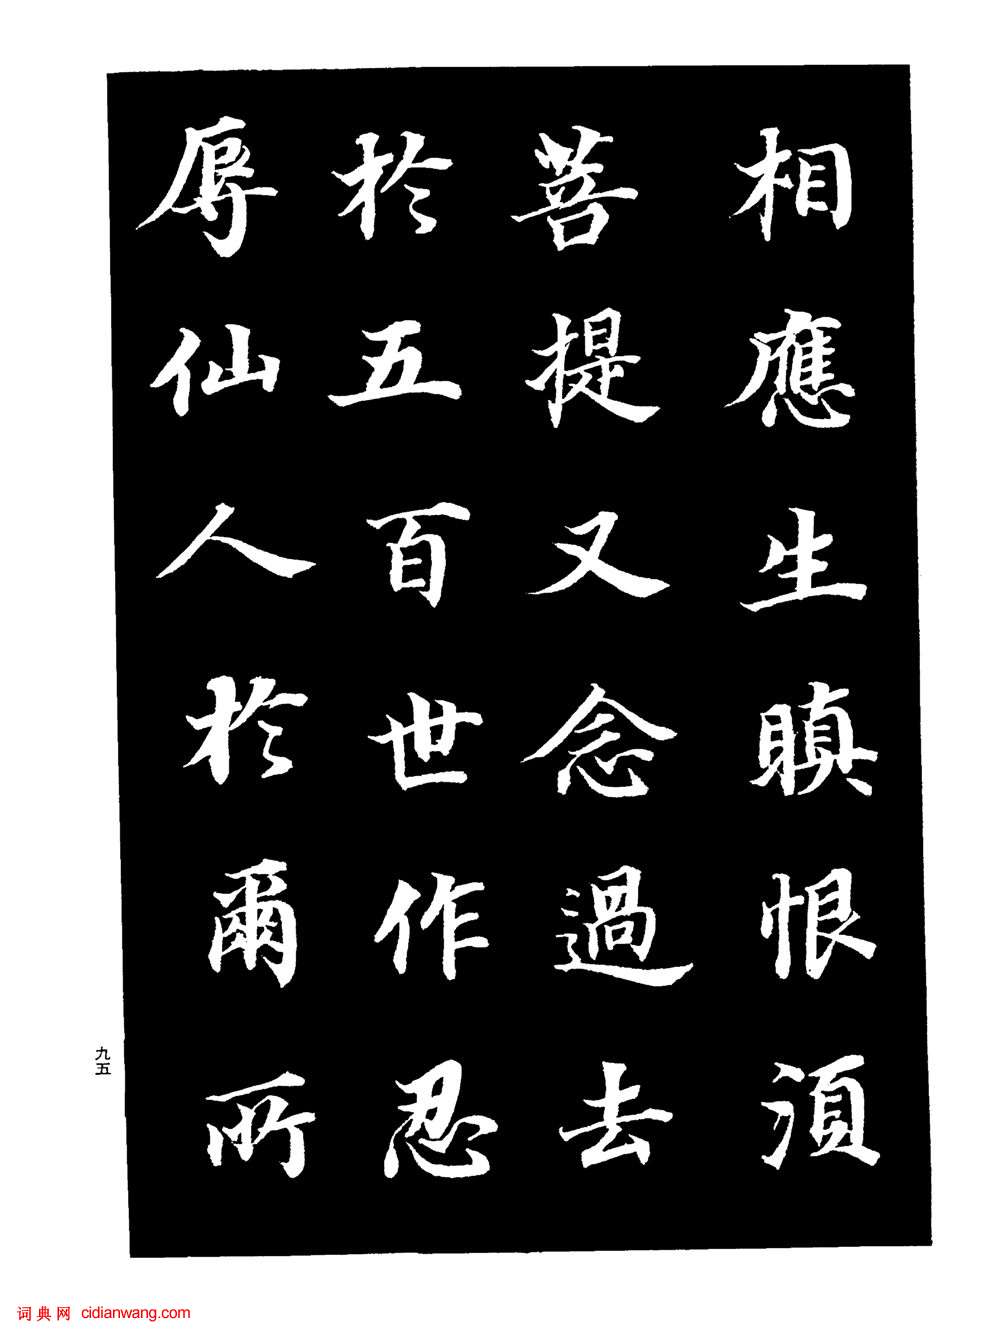 相應生瞋恨須
菩提又念過去
於五百世作忍
辱仙人於爾所
九五
词典网 cidianwang.com